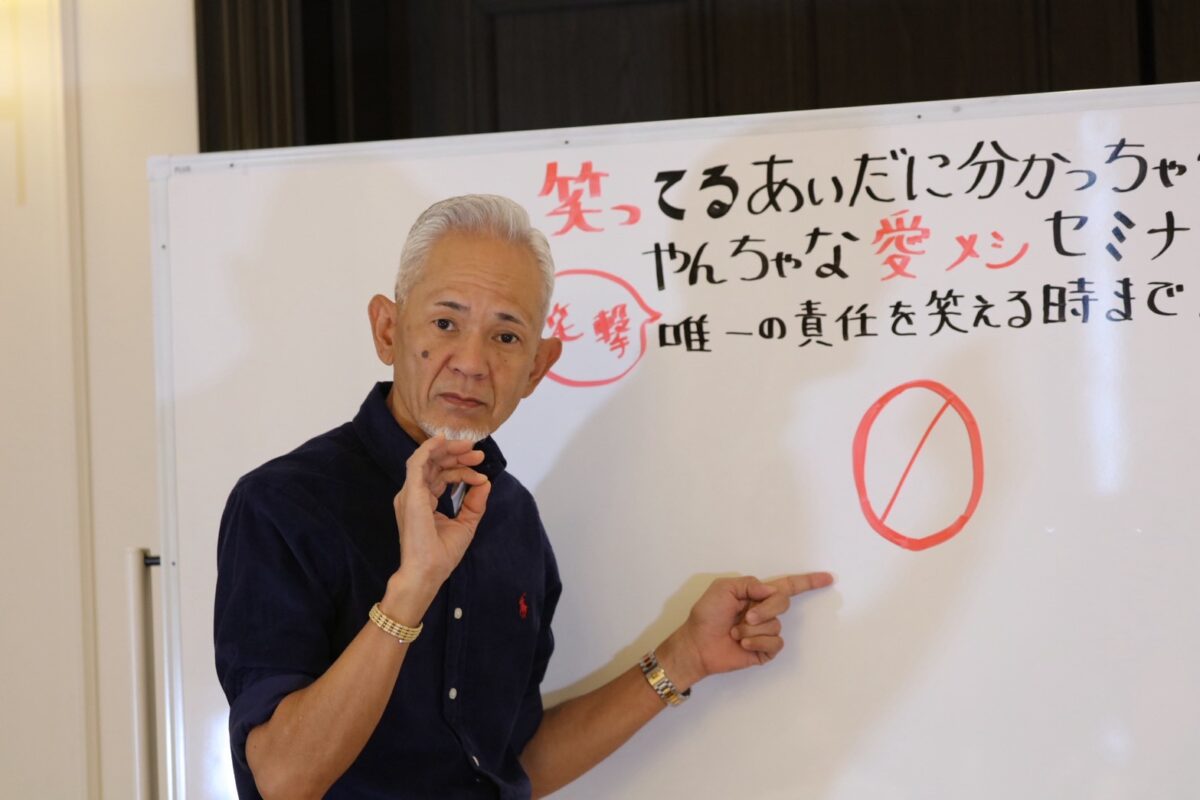 PLUS
笑ってるあいだに分かっちゃう
やんちゃな愛メシセミナ
笑撃
唯一の責任を笑える時まで